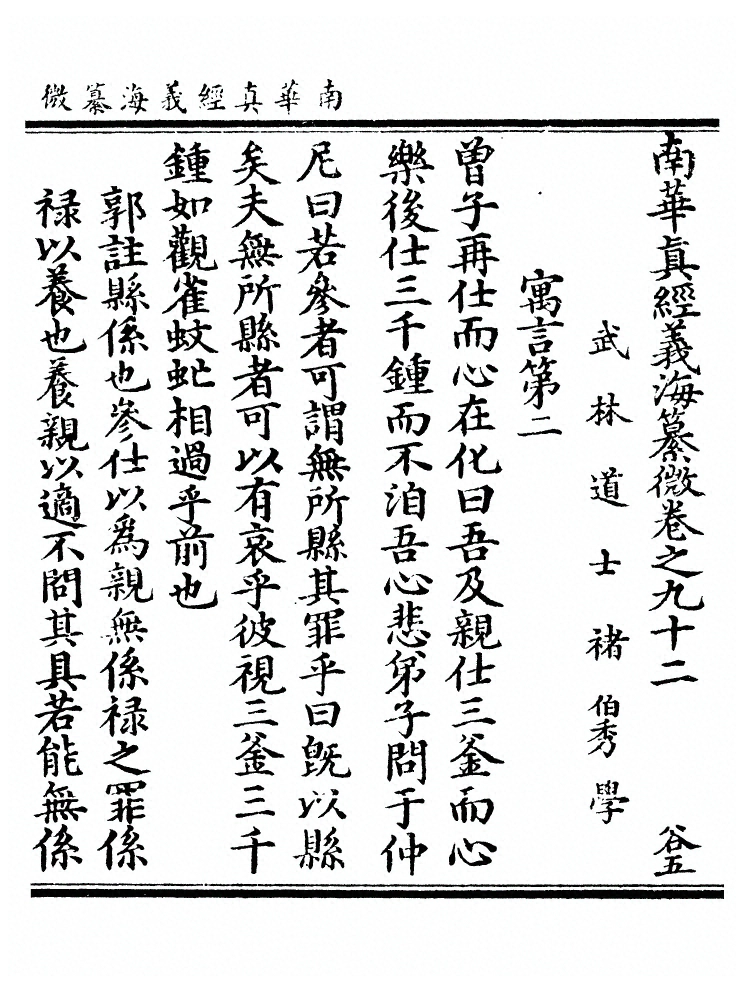 南華真經義海纂微
南華眞經義海纂微卷之九十二　谷五
武林道士褚伯秀學
寓言第二
曾子再仕而心在化曰吾及親仕三釜而心
樂後仕三千鍾而不洎吾心悲弟子問于仲
尼曰若參者可謂無所縣其罪乎曰旣以縣
矣夫無所縣者可以有哀乎彼視三釜三千
鍾如觀雀蚊虻相過乎前也
郭註縣係也參仕以爲親無係祿之罪係
祿以養也養親以適不問其具若能無係